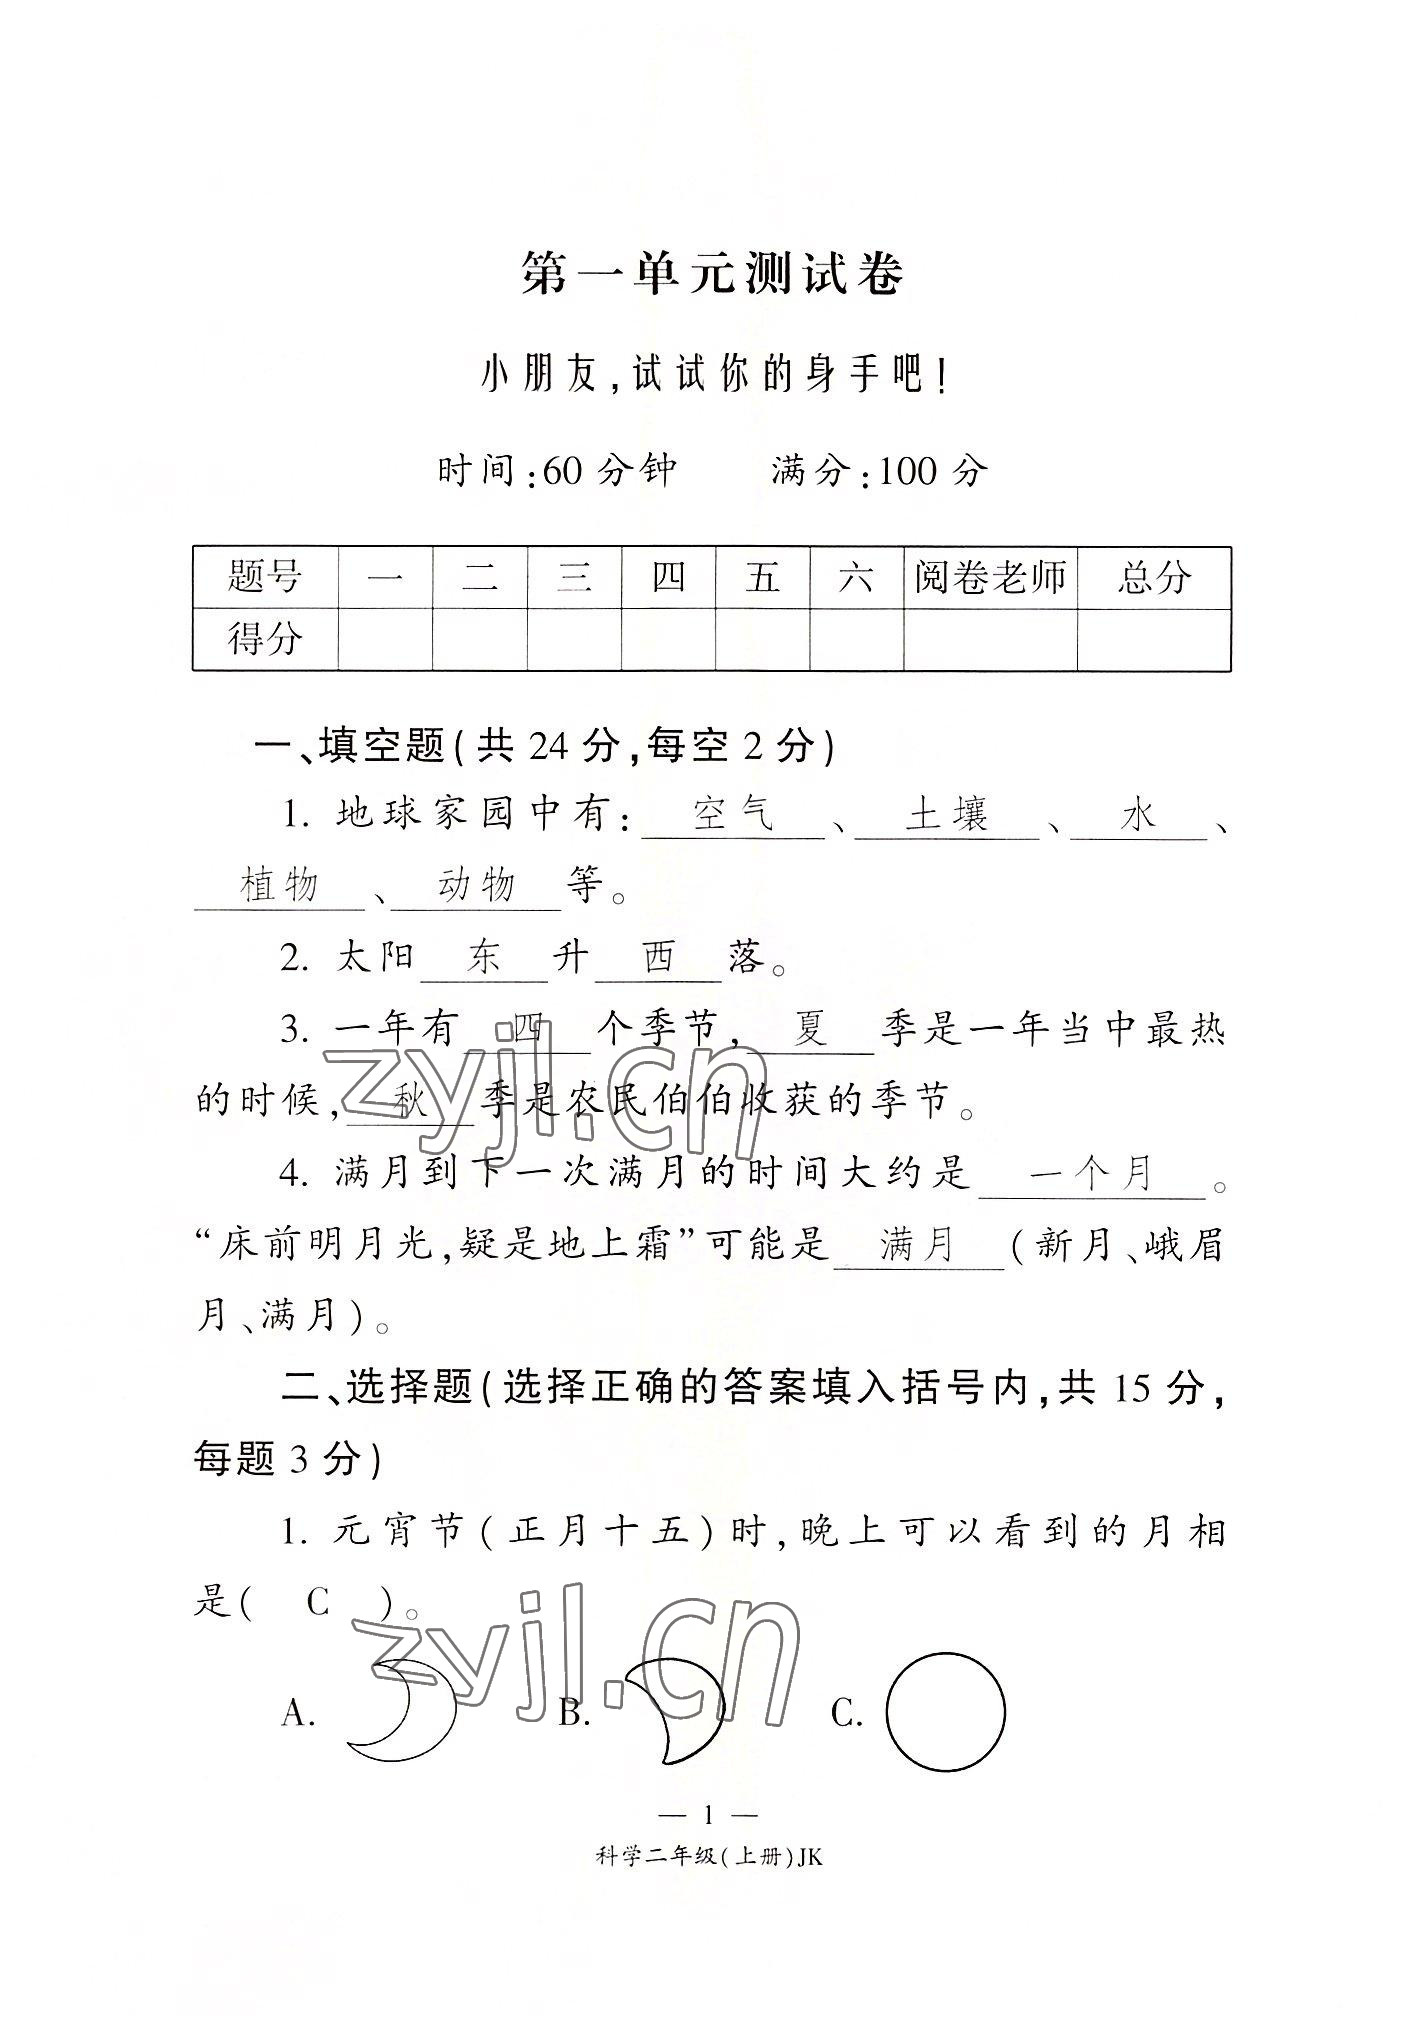 第一单元测试卷
小朋友,试试你的身手吧!
时间:60分钟 满分:100分
题号 一 二 三 四 五 六 阅卷老师 总分
得分
一、填空题(共24分,每空2分)
1. 地球家园中有: 空气 、 土壤 、 水 、
植物 、 动物 等。
2. 太阳 东 升 西 落。
3. 一年有 四 个季节, 夏 季是一年当中最热
的时候, 秋 季是农民伯伯收获的季节。
4. 满月到下一次满月的时间大约是 一个月 。
“床前明月光,疑是地上霜”可能是 满月 (新月、峨眉
月、满月)。
二、选择题(选择正确的答案填入括号内,共15分,
每题3分)
1. 元宵节(正月十五)时,晚上可以看到的月相
是( C )。
A. B. C.
— 1 —
科学二年级(上册)JK
zyjl.cn
zyjl.cn